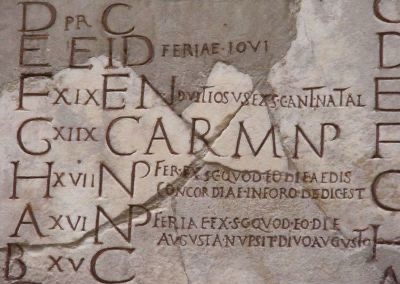 D PR C
E EID FERIAE·IOVI
F XIX EN DVITIOSVS·EX·S·C·ANT·NATAL
G XIIX CARM NP
H XVII NP FER·EX·S·C·QVOD·EO·DIE·AEDIS
CONCORDIAE·IN·FORO·DEDIC·EST
A XVI NP FERIAE·EX·S·C·QVOD·EO·DIE
AVGVSTA·NVPSIT·DIVO·AVGVSTO
B XV C
D
E
F
H